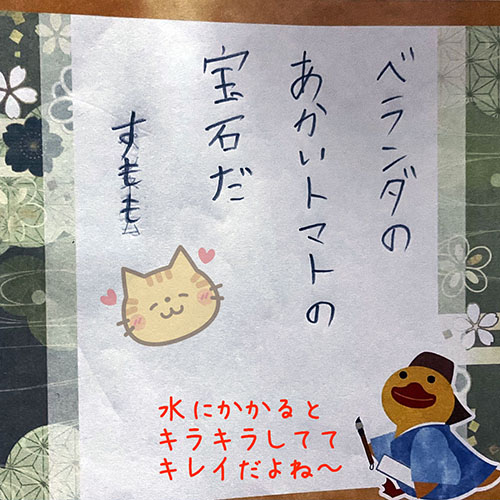 ベランダの
あかいトマトの
宝石だ
すもも
水にかかると
キラキラしてて
キレイだよね〜